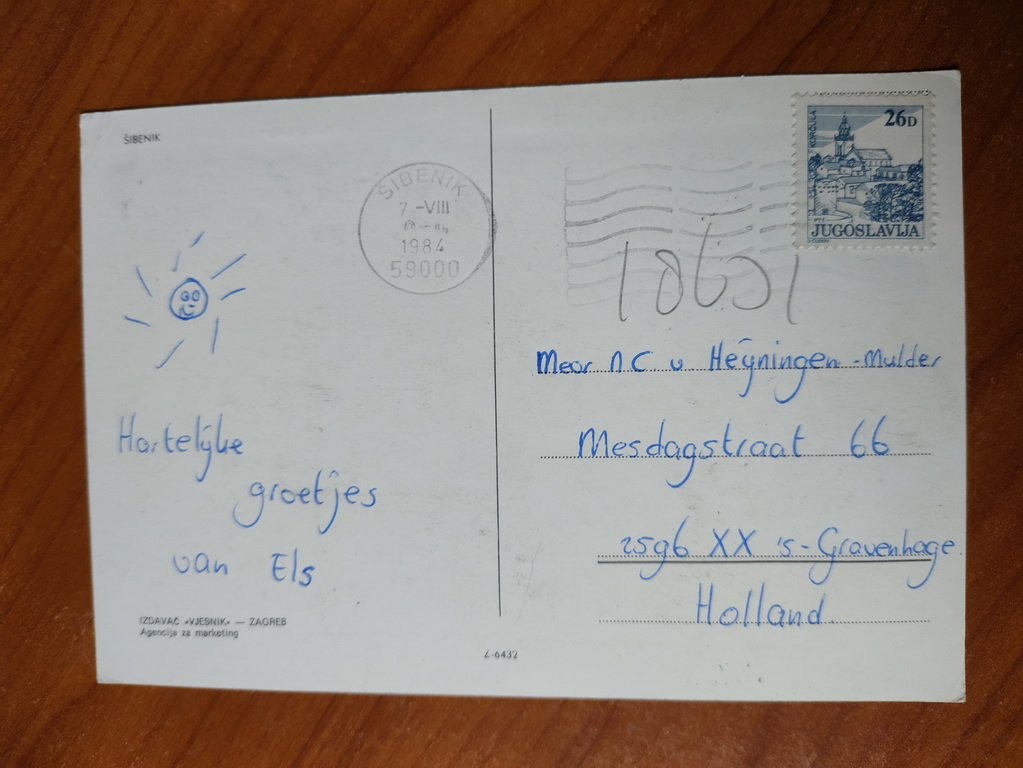 ŠIBENIK
ŠIBENIK
7-VIII
1984
59000
KORČULA
26D
PTT
JUGOSLAVIJA
Hartelijke
groetjes
van Els
IZDAVAČ »VJESNIK« — ZAGREB
Agencija za marketing
Z-6432
N C v Heijningen-Mulder
Mesdagstraat 66
2596 XX 's-Gravenhage
Holland